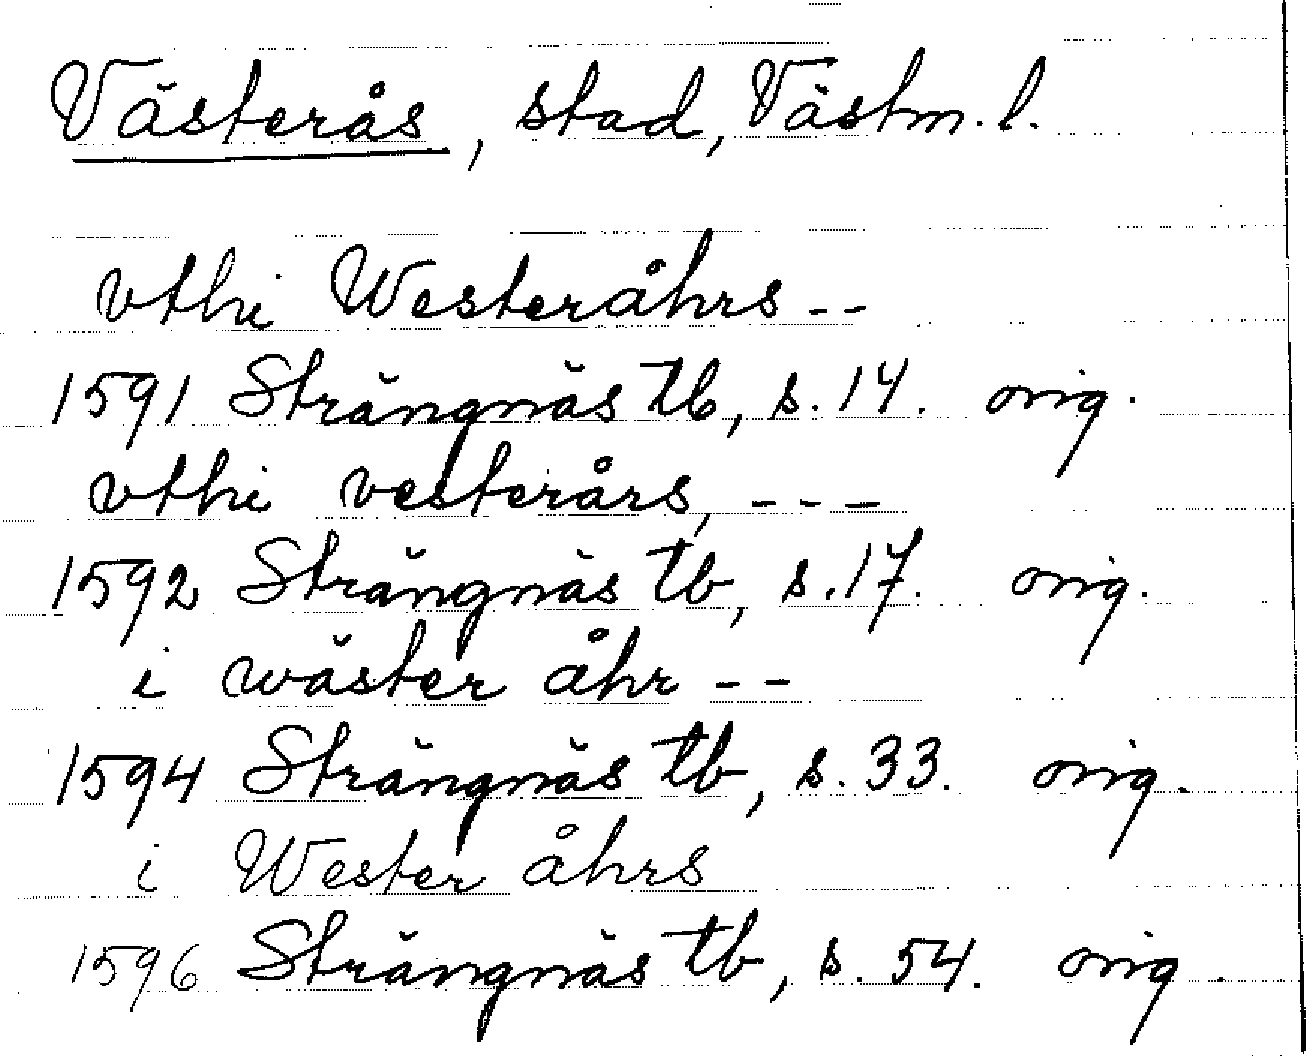 Västerås, stad, Västm. l.
vthi Westeråhrs - -
1591 Strängnäs tb, s. 14. orig.
vthi vesterårs, - - -
1592 Strängnäs tb, s. 17. orig.
i wäster åhr - -
1594 Strängnäs tb, s. 33. orig.
i Wester åhrs
1596 Strängnäs tb, s. 54. orig.